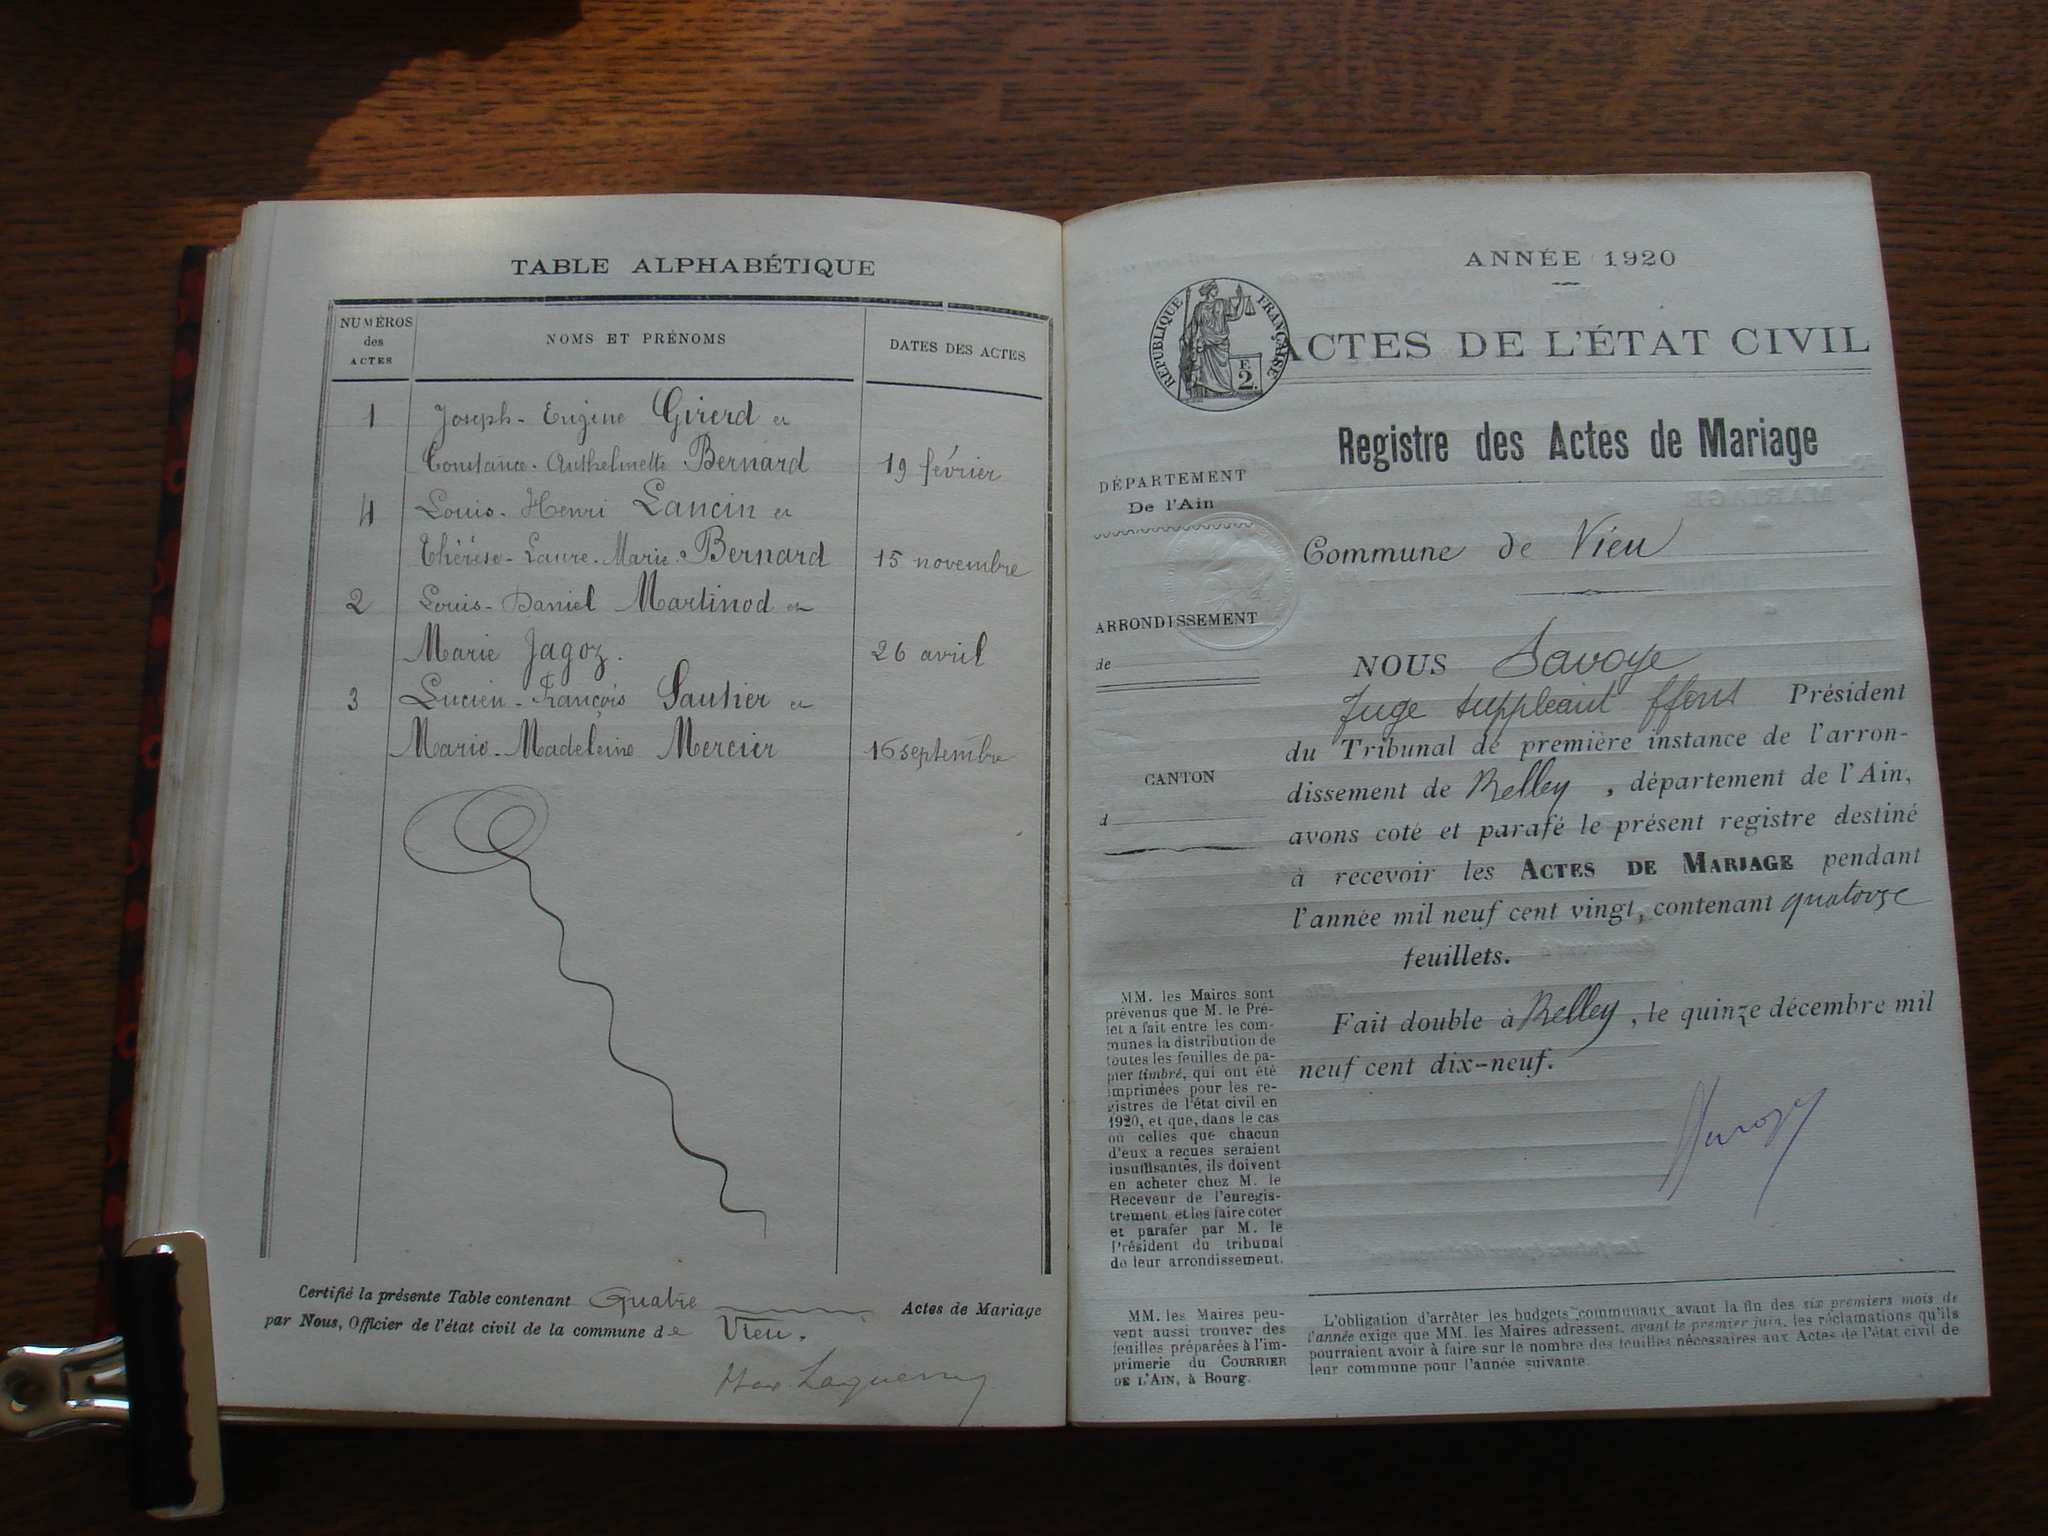 TABLE ALPHABÉTIQUE
NUMÉROS des ACTES
NOMS ET PRÉNOMS
DATES DES ACTES
1 Joseph-Eugène Girerd et
Constance-Anthelmette Bernard 19 février
4 Louis-Henri Lancin et
Thérèse-Laure-Marie Bernard 15 novembre
2 Louis-Daniel Martinod et
Marie Jagoz. 26 avril
3 Lucien-François Sautier et
Marie-Madeleine Mercier 16 septembre
Certifié la présente Table contenant Quatre Actes de Mariage
par Nous, Officier de l'état civil de la commune de Vieu.
ANNÉE 1920
RÉPUBLIQUE FRANÇAISE
2
ACTES DE L'ÉTAT CIVIL
Registre des Actes de Mariage
DÉPARTEMENT
De l'Ain
Commune de Vieu
ARRONDISSEMENT
de
CANTON
d
NOUS Savoye
Juge suppléant ffons Président
du Tribunal de première instance de l'arron-
dissement de Belley, département de l'Ain,
avons coté et parafé le présent registre destiné
à recevoir les ACTES DE MARIAGE pendant
l'année mil neuf cent vingt, contenant quatorze
feuillets.
Fait double à Belley, le quinze décembre mil
neuf cent dix-neuf.
MM. les Maires sont
prévenus que M. le Pré-
fet a fait entre les com-
munes la distribution de
toutes les feuilles de pa-
pier timbré, qui ont été
imprimées pour les re-
gistres de l'état civil en
1920, et que, dans le cas
où celles que chacun
d'eux a reçues seraient
insuffisantes, ils doivent
en acheter chez M. le
Receveur de l'enregis-
trement, et les faire coter
et parafer par M. le
Président du tribunal
de leur arrondissement.
MM. les Maires peu-
vent aussi trouver des
feuilles préparées à l'im-
primerie du COURRIER
DE L'AIN, à Bourg.
L'obligation d'arrêter les budgets communaux avant la fin des six premiers mois de
l'année exige que MM. les Maires adressent, avant le premier juin, les réclamations qu'ils
pourraient avoir à faire sur le nombre des feuilles nécessaires aux Actes de l'état civil de
leur commune pour l'année suivante.